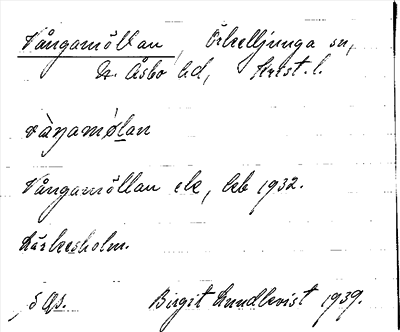 Vångamöllan, Örkelljunga sn,
N. Åsbo hd, Krist. l.
våŋamö̀lan
Vångamöllan ek, leb 1932.
Kärkesholm.
Birgit Lundkvist 1939.